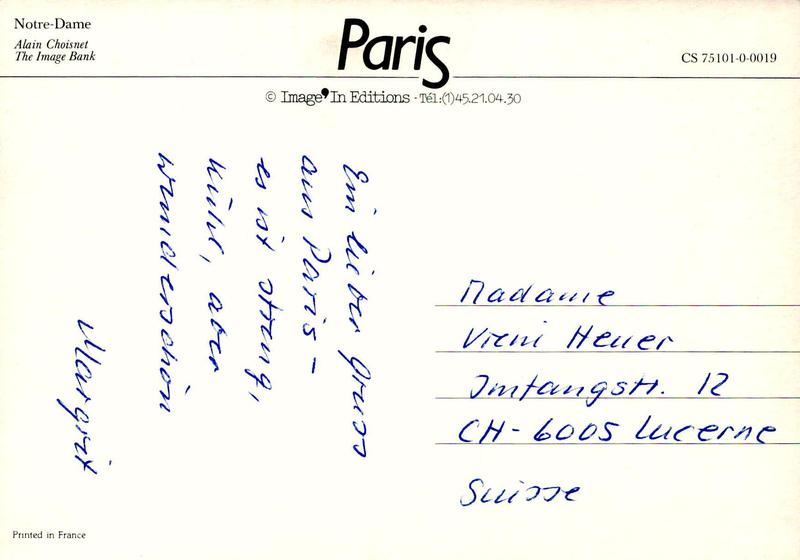 Notre-Dame
Alain Choisnet
The Image Bank
Paris
CS 75101-0-0019
© Image'In Editions - Tél:(1)45.21.04.30
Ein lieber Gruss
aus Paris –
es ist streng,
kühl, aber
wunderschön
Margrit
Madame
Vreni Heuer
Imfangstr. 12
CH-6005 Lucerne
Suisse
Printed in France